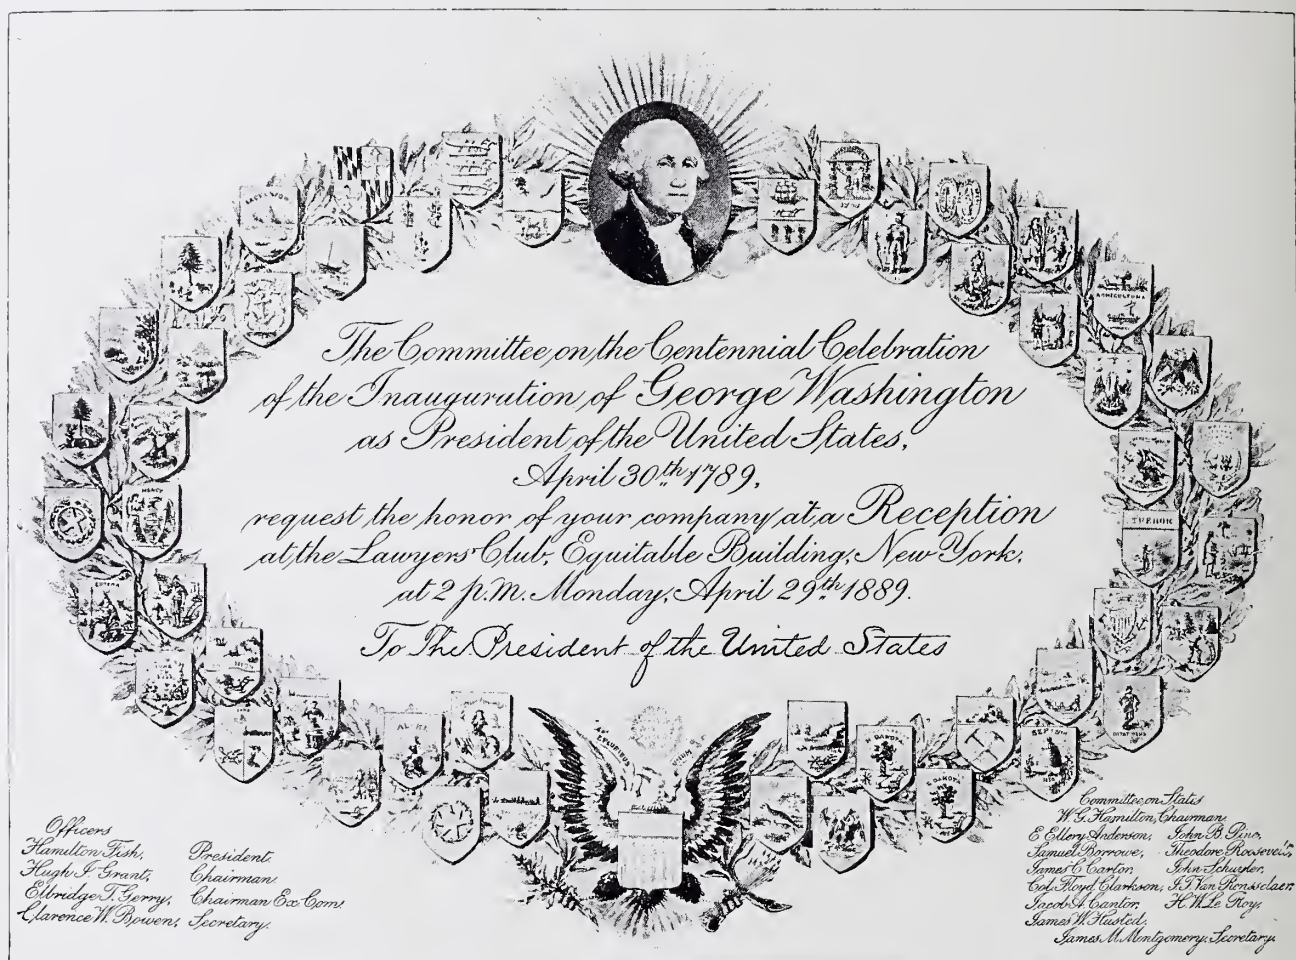 The Committee on the Centennial Celebration
of the Inauguration of George Washington
as President of the United States,
April 30th 1789,
request the honor of your company at a Reception
at the Lawyers' Club, Equitable Building, New York,
at 2 p.m. Monday, April 29th 1889.
To The President of the United States
AGRICULTURE
MERCY
DAKOTA
DAKOTA
Officers
Hamilton Fish, President.
Hugh J. Grant, Chairman.
Elbridge T. Gerry, Chairman Ex Com.
Clarence W. Bowen, Secretary.
Committee on States
W. G. Hamilton, Chairman.
E Ellery Anderson, John B. Pine,
Samuel Borrowe, Theodore Roosevelt,
James C. Carter, John Schuyler,
Col. Floyd Clarkson, J. T. Van Rensselaer
Jacob A. Cantor, H. W. Le Roy,
James W. Husted.
James M. Montgomery, Secretary.